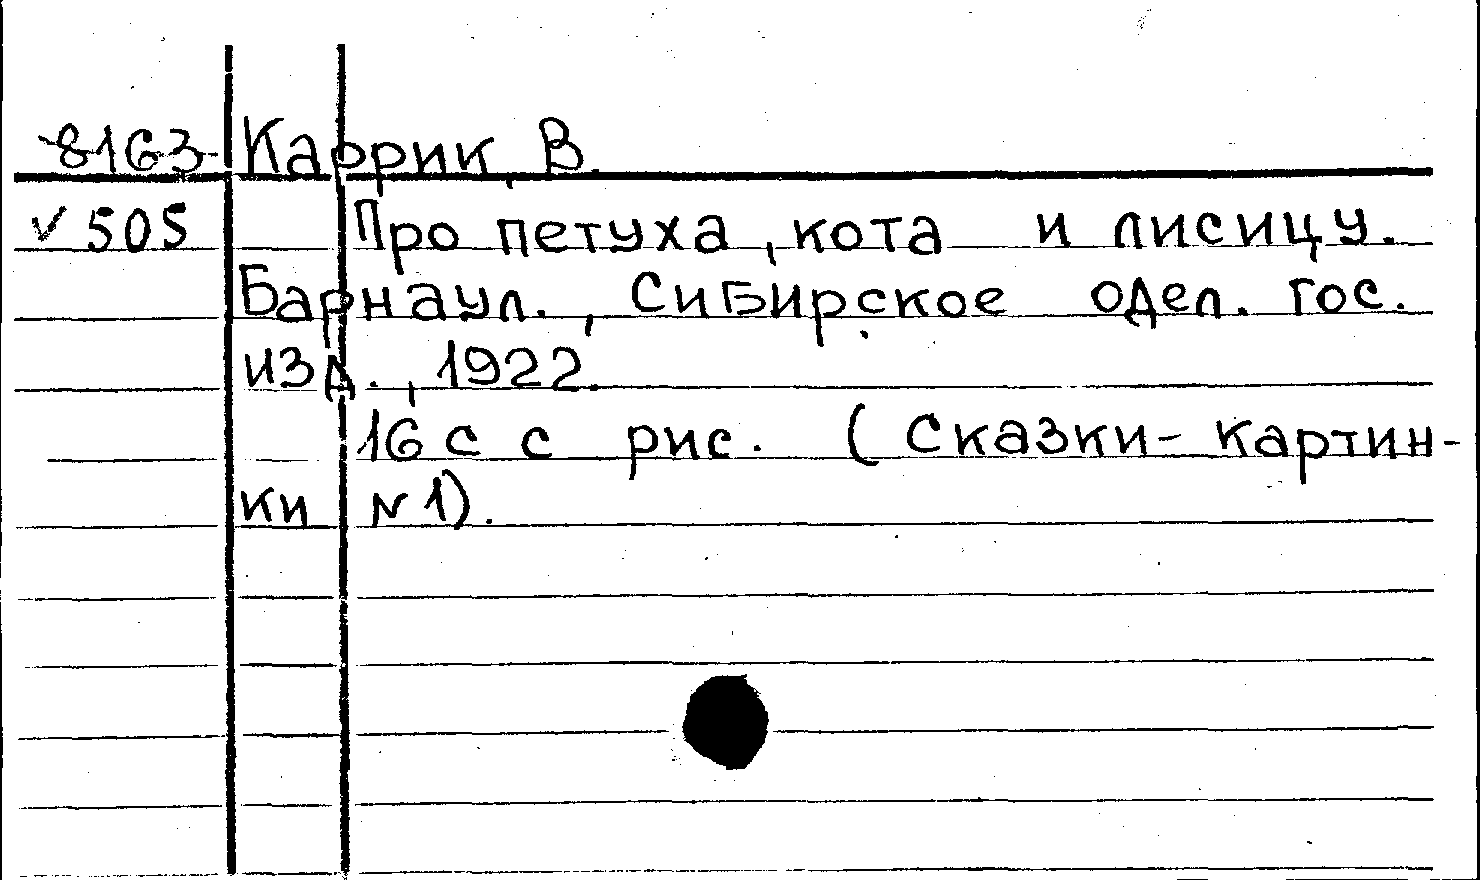 8163 Каррик, В.
v 505 Про петуха, кота и лисицу.
Барнаул., Сибирское одел. гос.
изд., 1922.
16 с с рис. (Сказки-картин-
ки N1).